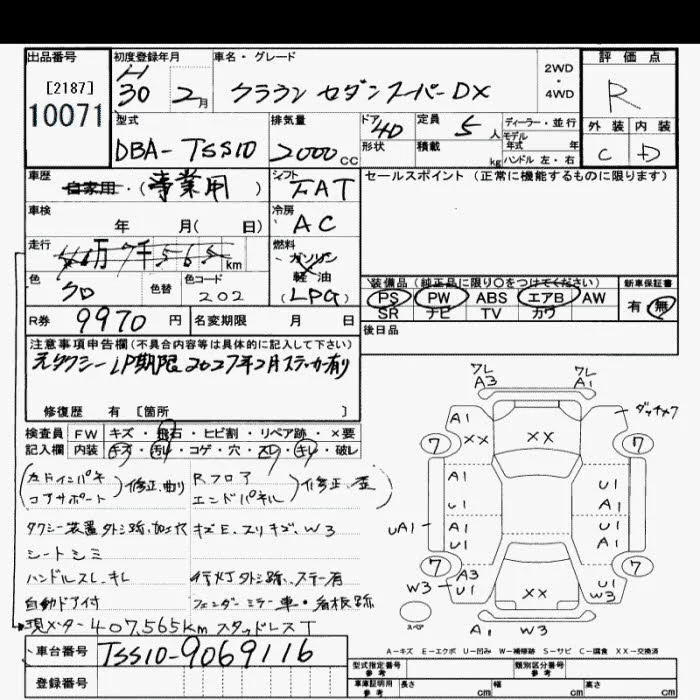 出品番号 初度登録年月 車名・グレード 評価点
[2187] H 2WD・4WD
10071 30 2月 クラウン セダンスーパーDX R
型式 排気量 ドア 4D 定員 5人 ディーラー・並行 外装 内装
DBA-TSS10 2000cc 形状 積載 kg モデル年式 年式 ハンドル左・右 C D
車歴 自家用・(事業用) シフト FAT セールスポイント(正常に機能するものに限ります)
車検 年 月( 日) 冷房 AC
走行 40万7千565km 燃料 ガソリン 軽油 (LPG)
色 クロ 色替 色コード 202
装備品(純正品に限り○をつけてください) 新車保証書
PS PW ABS エアB AW 有・無
SR ナビ TV カワ
R券 9970円 名変期限 月 日 後日品
注意事項申告欄(不具合内容等は具体的に記入して下さい)
元タクシー LP期限2027年2月ステッカー有り
修復歴 有 [箇所 ]
検査員 FW キズ・飛石・ヒビ割・リペア跡・×要
記入欄 内装 キズ・汚レ・コゲ・穴・スレ・キレ・破レ
(左ドインパネ コアサポート)修正、曲り (Rフロア エンドパネル)修正、歪
タクシー装置外シ跡、加工穴 キズE、スリキズ、W3
シートシミ
ハンドルスレ、キレ 行灯外シ跡、ステー有
自動ドア付 フェンダーミラー車・名板跡
現メーター407,565km スタッドレスT
車台番号 TSS10-9069116
登録番号
ワレ A3 ワレ A1
A1 XX XX ダッチメク
7 7
A1 U1
A1
UA1 U1 U1
A1 A1
U1 U1
7 7
A3 U1
W3 U1 XX W3
スペア A1 W3
A-キズ E-エクボ U-凹み W-補修跡 S-サビ C-腐食 XX-交換済
型式指定番号 参考 類別区分番号 参考
車庫証明用 参考 長さ cm 幅 cm 高さ cm